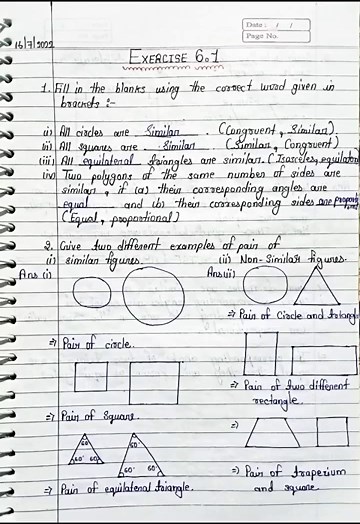 Date : / /
Page No.
16/7/2022
EXERCISE 6.1
1. Fill in the blanks using the correct word given in
brackets :-
(i) All circles are Similar. (Congruent, Similar)
(ii) All squares are Similar. (Similar, Congruent)
(iii) All equilateral triangles are similar. (Isosceles, equilateral)
(iv) Two polygons of the same number of sides are
similar, if (a) their corresponding angles are
equal and (b) their corresponding sides are proportional
(Equal, proportional)
2. Give two different examples of pair of
(i) similar figures. (ii) Non-Similar figures.
Ans (i) Ans (ii)
⇒ Pair of Circle and triangle
⇒ Pair of circle.
⇒ Pair of two different
rectangle.
⇒ Pair of Square.
⇒)
60°
60° 60°
60°
60° 60°
⇒) Pair of traperium
and square
⇒ Pair of equilateral triangle.